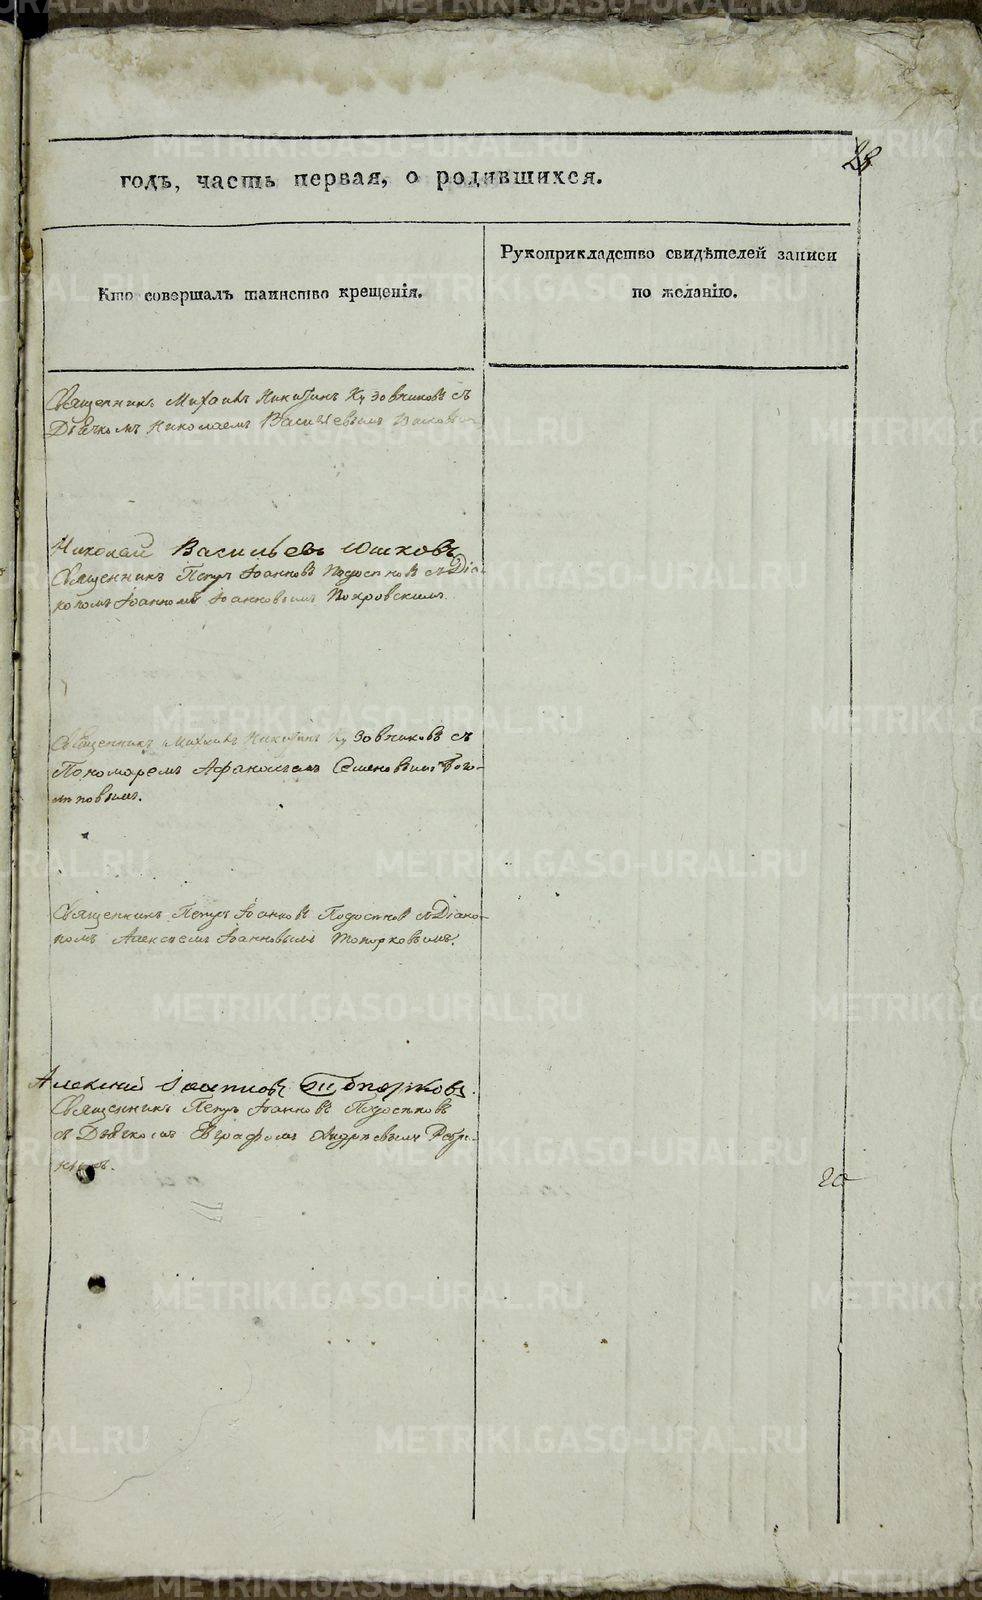 28
годъ, часть первая, о родившихся.
Кто совершалъ таинство крещенія.
Рукоприкладство свидѣтелей записи
по желанію.
Священникъ Михаилъ Никитинъ Кузовниковъ съ
Дьячкомъ Николаемъ Васильевымъ
Николай Васильевъ Юшковъ
Священникъ Петръ Іоанновъ съ Діа-
кономъ Іоанномъ Іоанновымъ Покровскимъ.
Священникъ Михаилъ Никитинъ Кузовниковъ съ
Пономаремъ Афанасіемъ Семеновымъ
Священникъ Петръ Іоанновъ съ Діако-
номъ Алексѣемъ Іоанновымъ Топорковымъ.
Алексій Іоанновъ Топорковъ.
Священникъ Петръ Іоанновъ
съ Дьячкомъ Евграфомъ Андреевымъ
20
METRIKI.GASO-URAL.RU